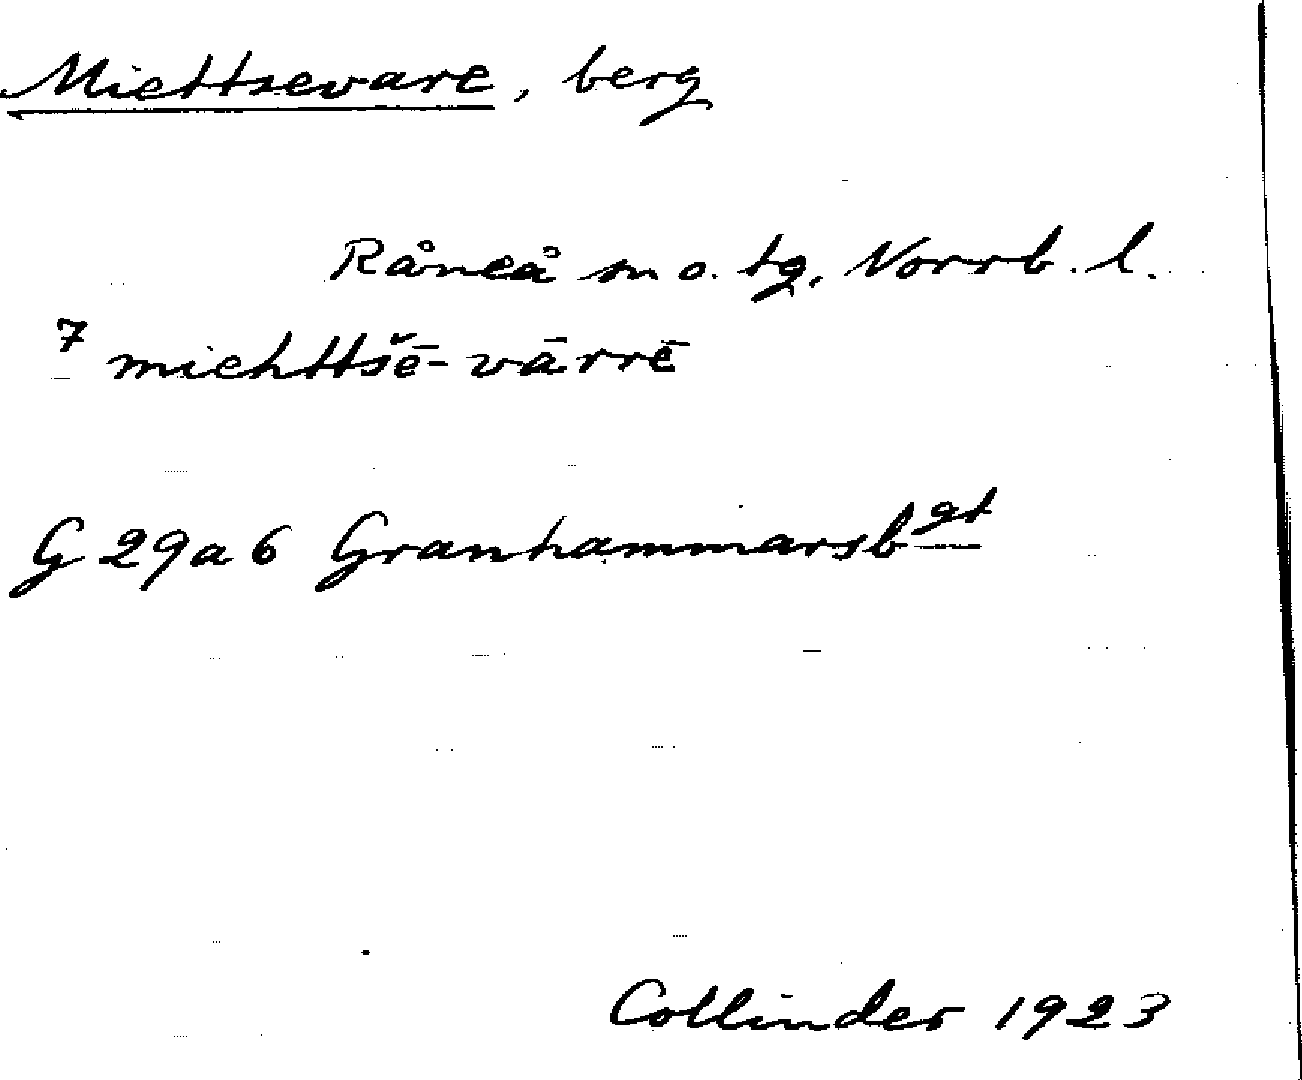 Miettsevare, berg
Råneå sn o. tg, Norrb. l.
7 miehttšē-vārrē
G 29a6 Granhammarsbgt
Collinder 1923